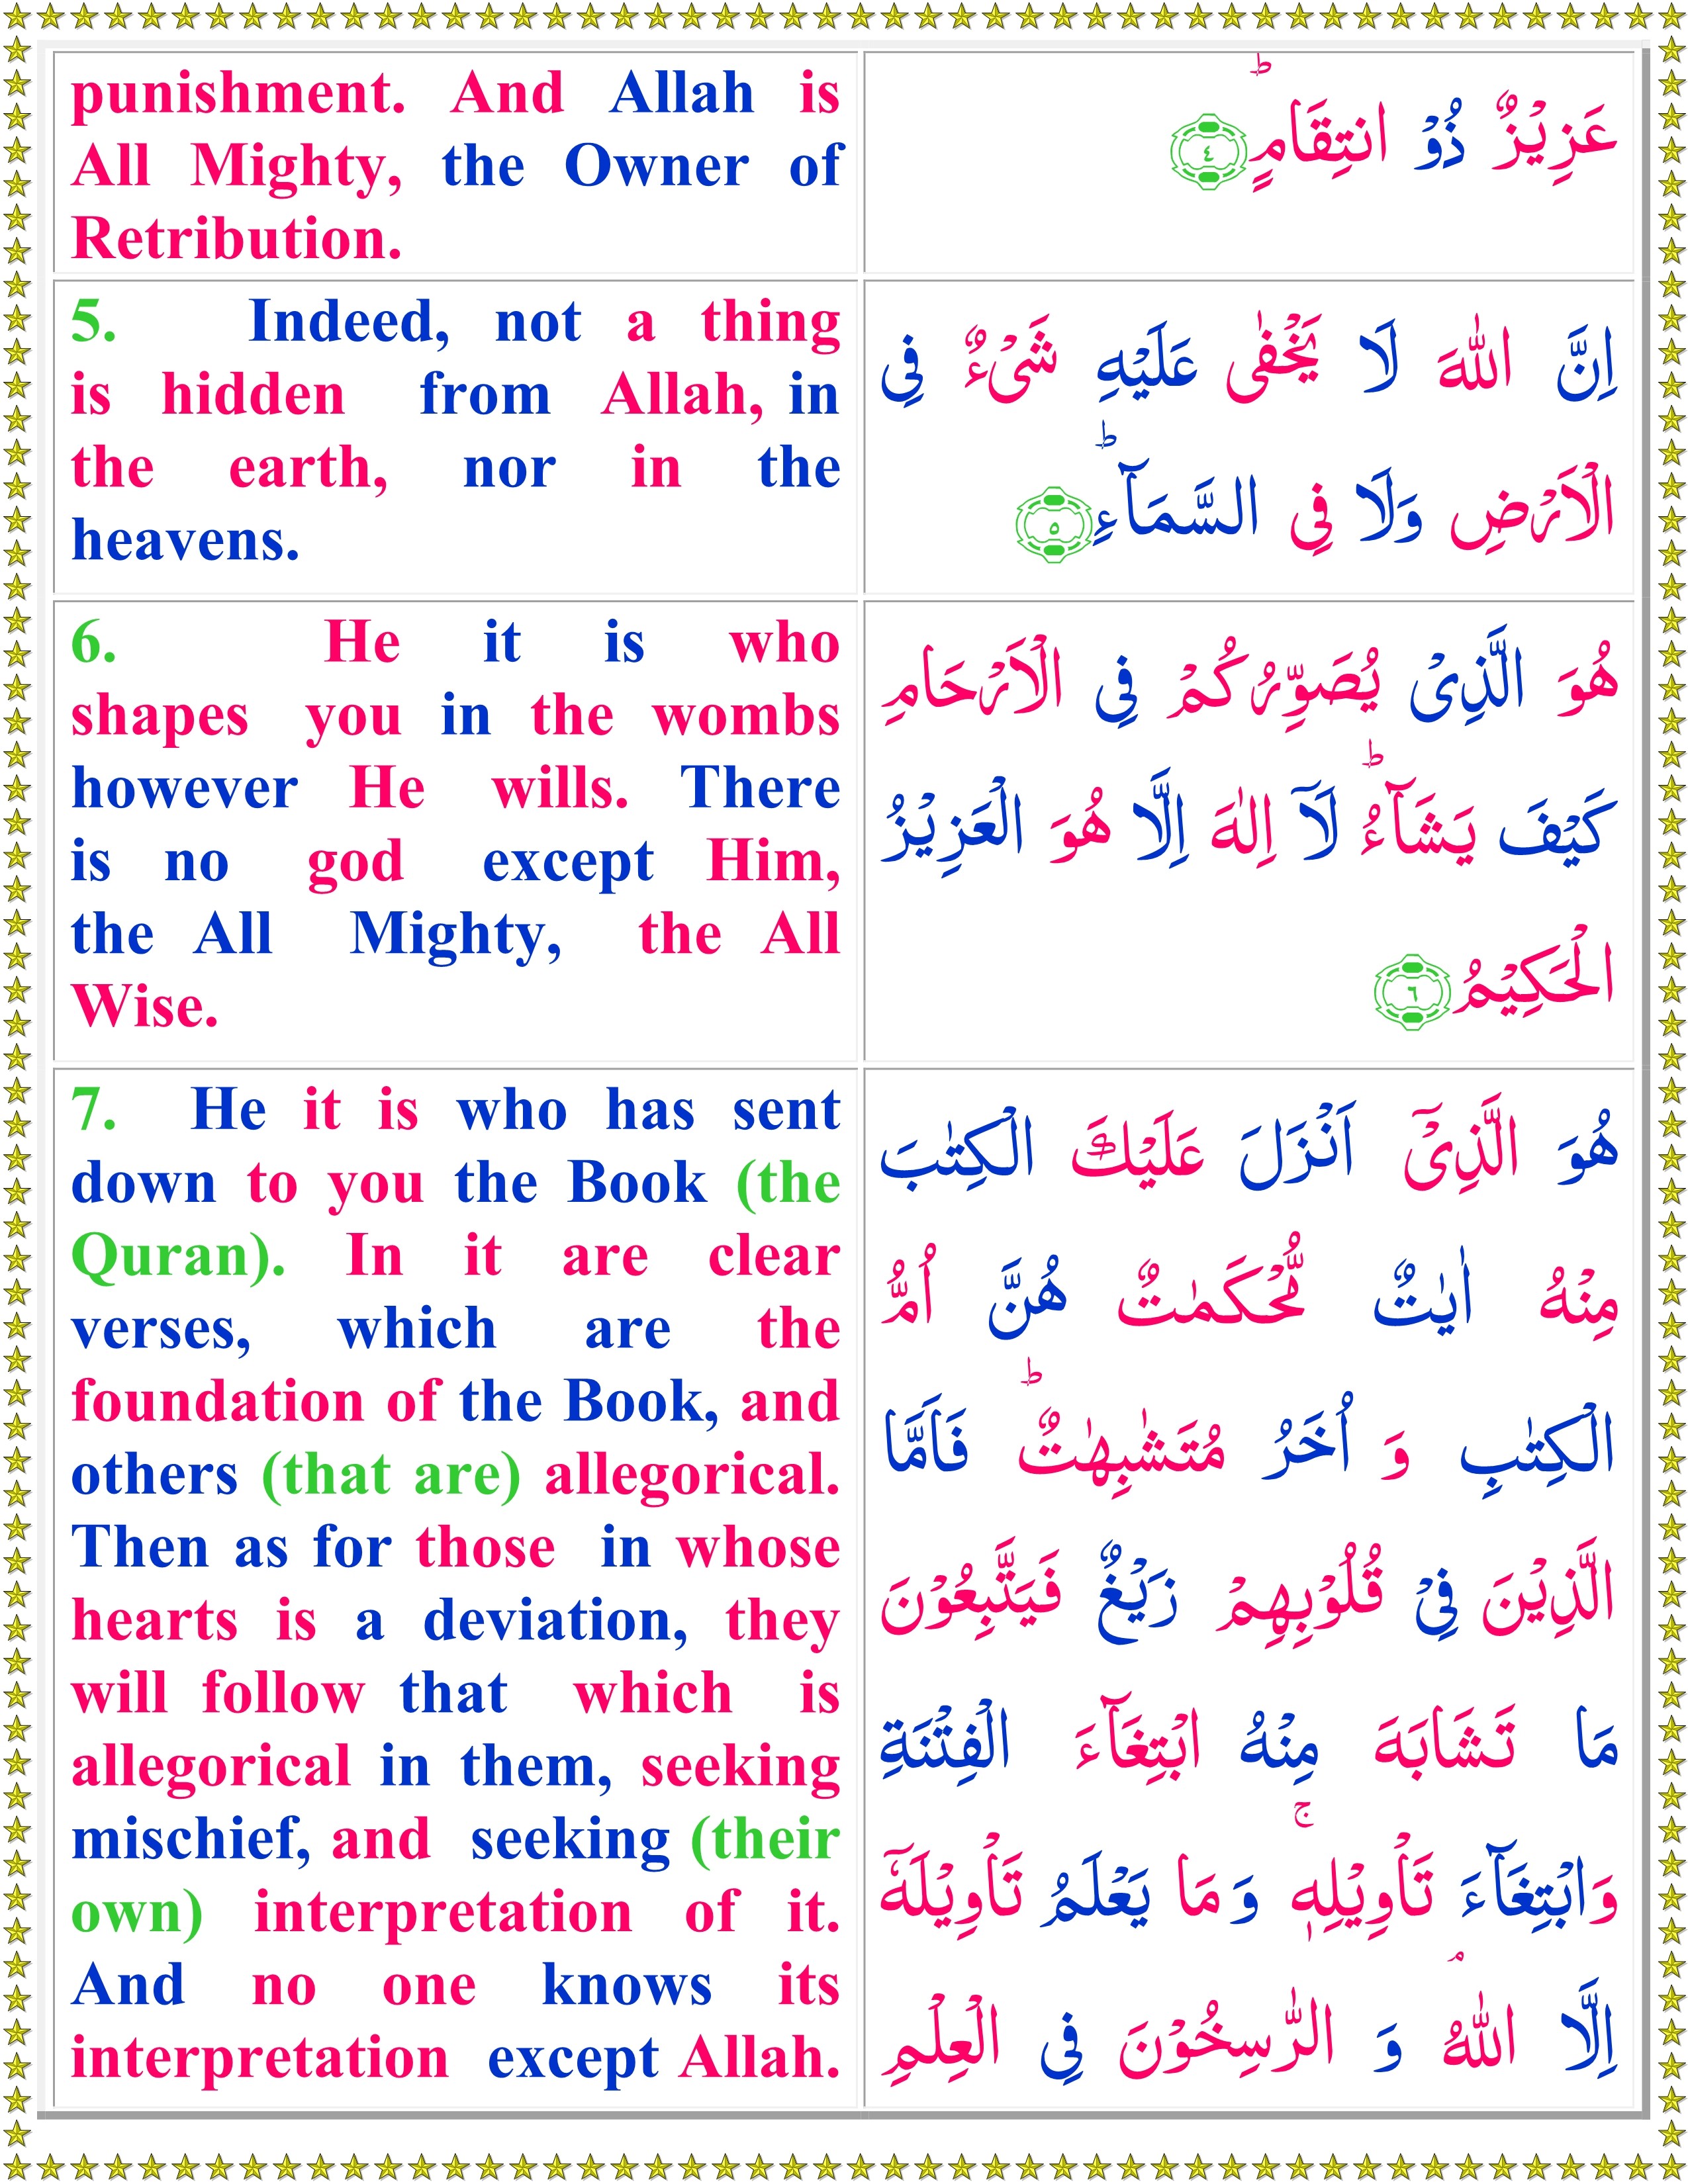 punishment. And Allah is
All Mighty, the Owner of
Retribution.
عَزِيْزٌ ذُوْ انتِقَامٍؕ ﴿٤﴾
5. Indeed, not a thing
is hidden from Allah, in
the earth, nor in the
heavens.
اِنَّ اللّٰهَ لَا يَخْفٰى عَلَيْهِ شَىْءٌ فِى
الْاَرْضِ وَلَا فِى السَّمَآءِؕ ﴿٥﴾
6. He it is who
shapes you in the wombs
however He wills. There
is no god except Him,
the All Mighty, the All
Wise.
هُوَ الَّذِىْ يُصَوِّرُكُمْ فِى الْاَرْحَامِ
كَيْفَ يَشَآءُؕ لَاۤ اِلٰهَ اِلَّا هُوَ الْعَزِيْزُ
الْحَكِيْمُ ﴿٦﴾
7. He it is who has sent
down to you the Book (the
Quran). In it are clear
verses, which are the
foundation of the Book, and
others (that are) allegorical.
Then as for those in whose
hearts is a deviation, they
will follow that which is
allegorical in them, seeking
mischief, and seeking (their
own) interpretation of it.
And no one knows its
interpretation except Allah.
هُوَ الَّذِىْۤ اَنْزَلَ عَلَيْكَ الْكِتٰبَ
مِنْهُ اٰيٰتٌ مُّحْكَمٰتٌ هُنَّ اُمُّ
الْكِتٰبِ وَ اُخَرُ مُتَشٰبِهٰتٌؕ فَاَمَّا
الَّذِيْنَ فِىْ قُلُوْبِهِمْ زَيْغٌ فَيَتَّبِعُوْنَ
مَا تَشَابَهَ مِنْهُ ابْتِغَآءَ الْفِتْنَةِ
وَابْتِغَآءَ تَاْوِيْلِهٖۚ وَ مَا يَعْلَمُ تَاْوِيْلَهٗۤ
اِلَّا اللّٰهُۘ وَ الرّٰسِخُوْنَ فِى الْعِلْمِ